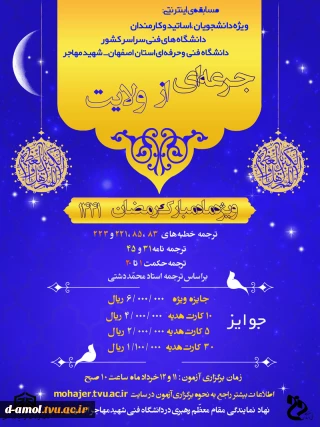 مسابقه‌ی اینترنتی:
ویژه دانشجویان، اساتید و کارمندان
دانشگاه های فنی سراسر کشور
دانشگاه فنی و حرفه‌ای استان اصفهان_ شهید مهاجر
جرعه‌ای از ولایت
ویژه ماه مبارک رمضان ۱۴۴۱
ترجمه خطبه‌های ۸۳ ،۸۵ ،۲۲۱ و ۲۲۳
ترجمه نامه ۳۱ و ۴۵
ترجمه حکمت ۱ تا ۲۰
بر اساس ترجمه استاد محمد دشتی
جوایز
جایزه ویژه ۶/۰۰۰/۰۰۰ ریال
۱۰ کارت هدیه ۴/۰۰۰/۰۰۰ ریال
۵ کارت هدیه ۲/۰۰۰/۰۰۰ ریال
۳۰ کارت هدیه ۱/۱۰۰/۰۰۰ ریال
زمان برگزاری آزمون : ۱۱ و ۱۲ خرداد ماه ساعت ۱۰ صبح
اطلاعات بیشتر راجع به نحوه برگزاری آزمون در سایت mohajer.tvu.ac.ir
نهاد نمایندگی مقام معظّم رهبری در دانشگاه فنی شهید مهاجر
d-amol.tvu.ac.ir